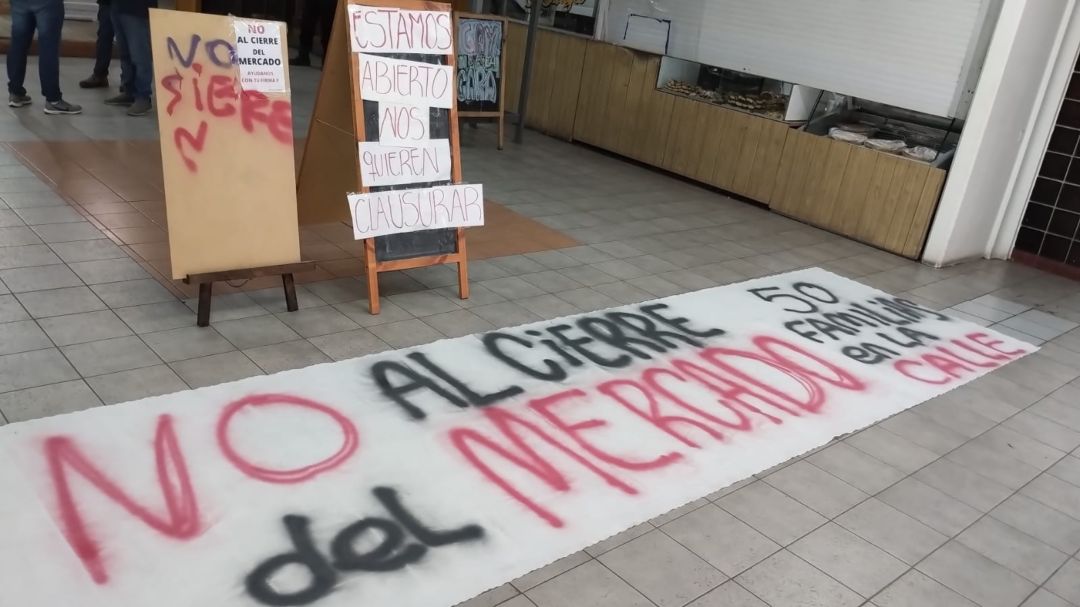 NO
SIERE
N
NO
AL CIERRE
DEL
MERCADO
AYUDANOS
CON TU FIRMA!!
ESTAMOS
ABIERTO
NOS
QUIEREN
CLAUSURAR
NO AL CIERRE
del MERCADO
50
FAMILIAS
en LA
CALLE